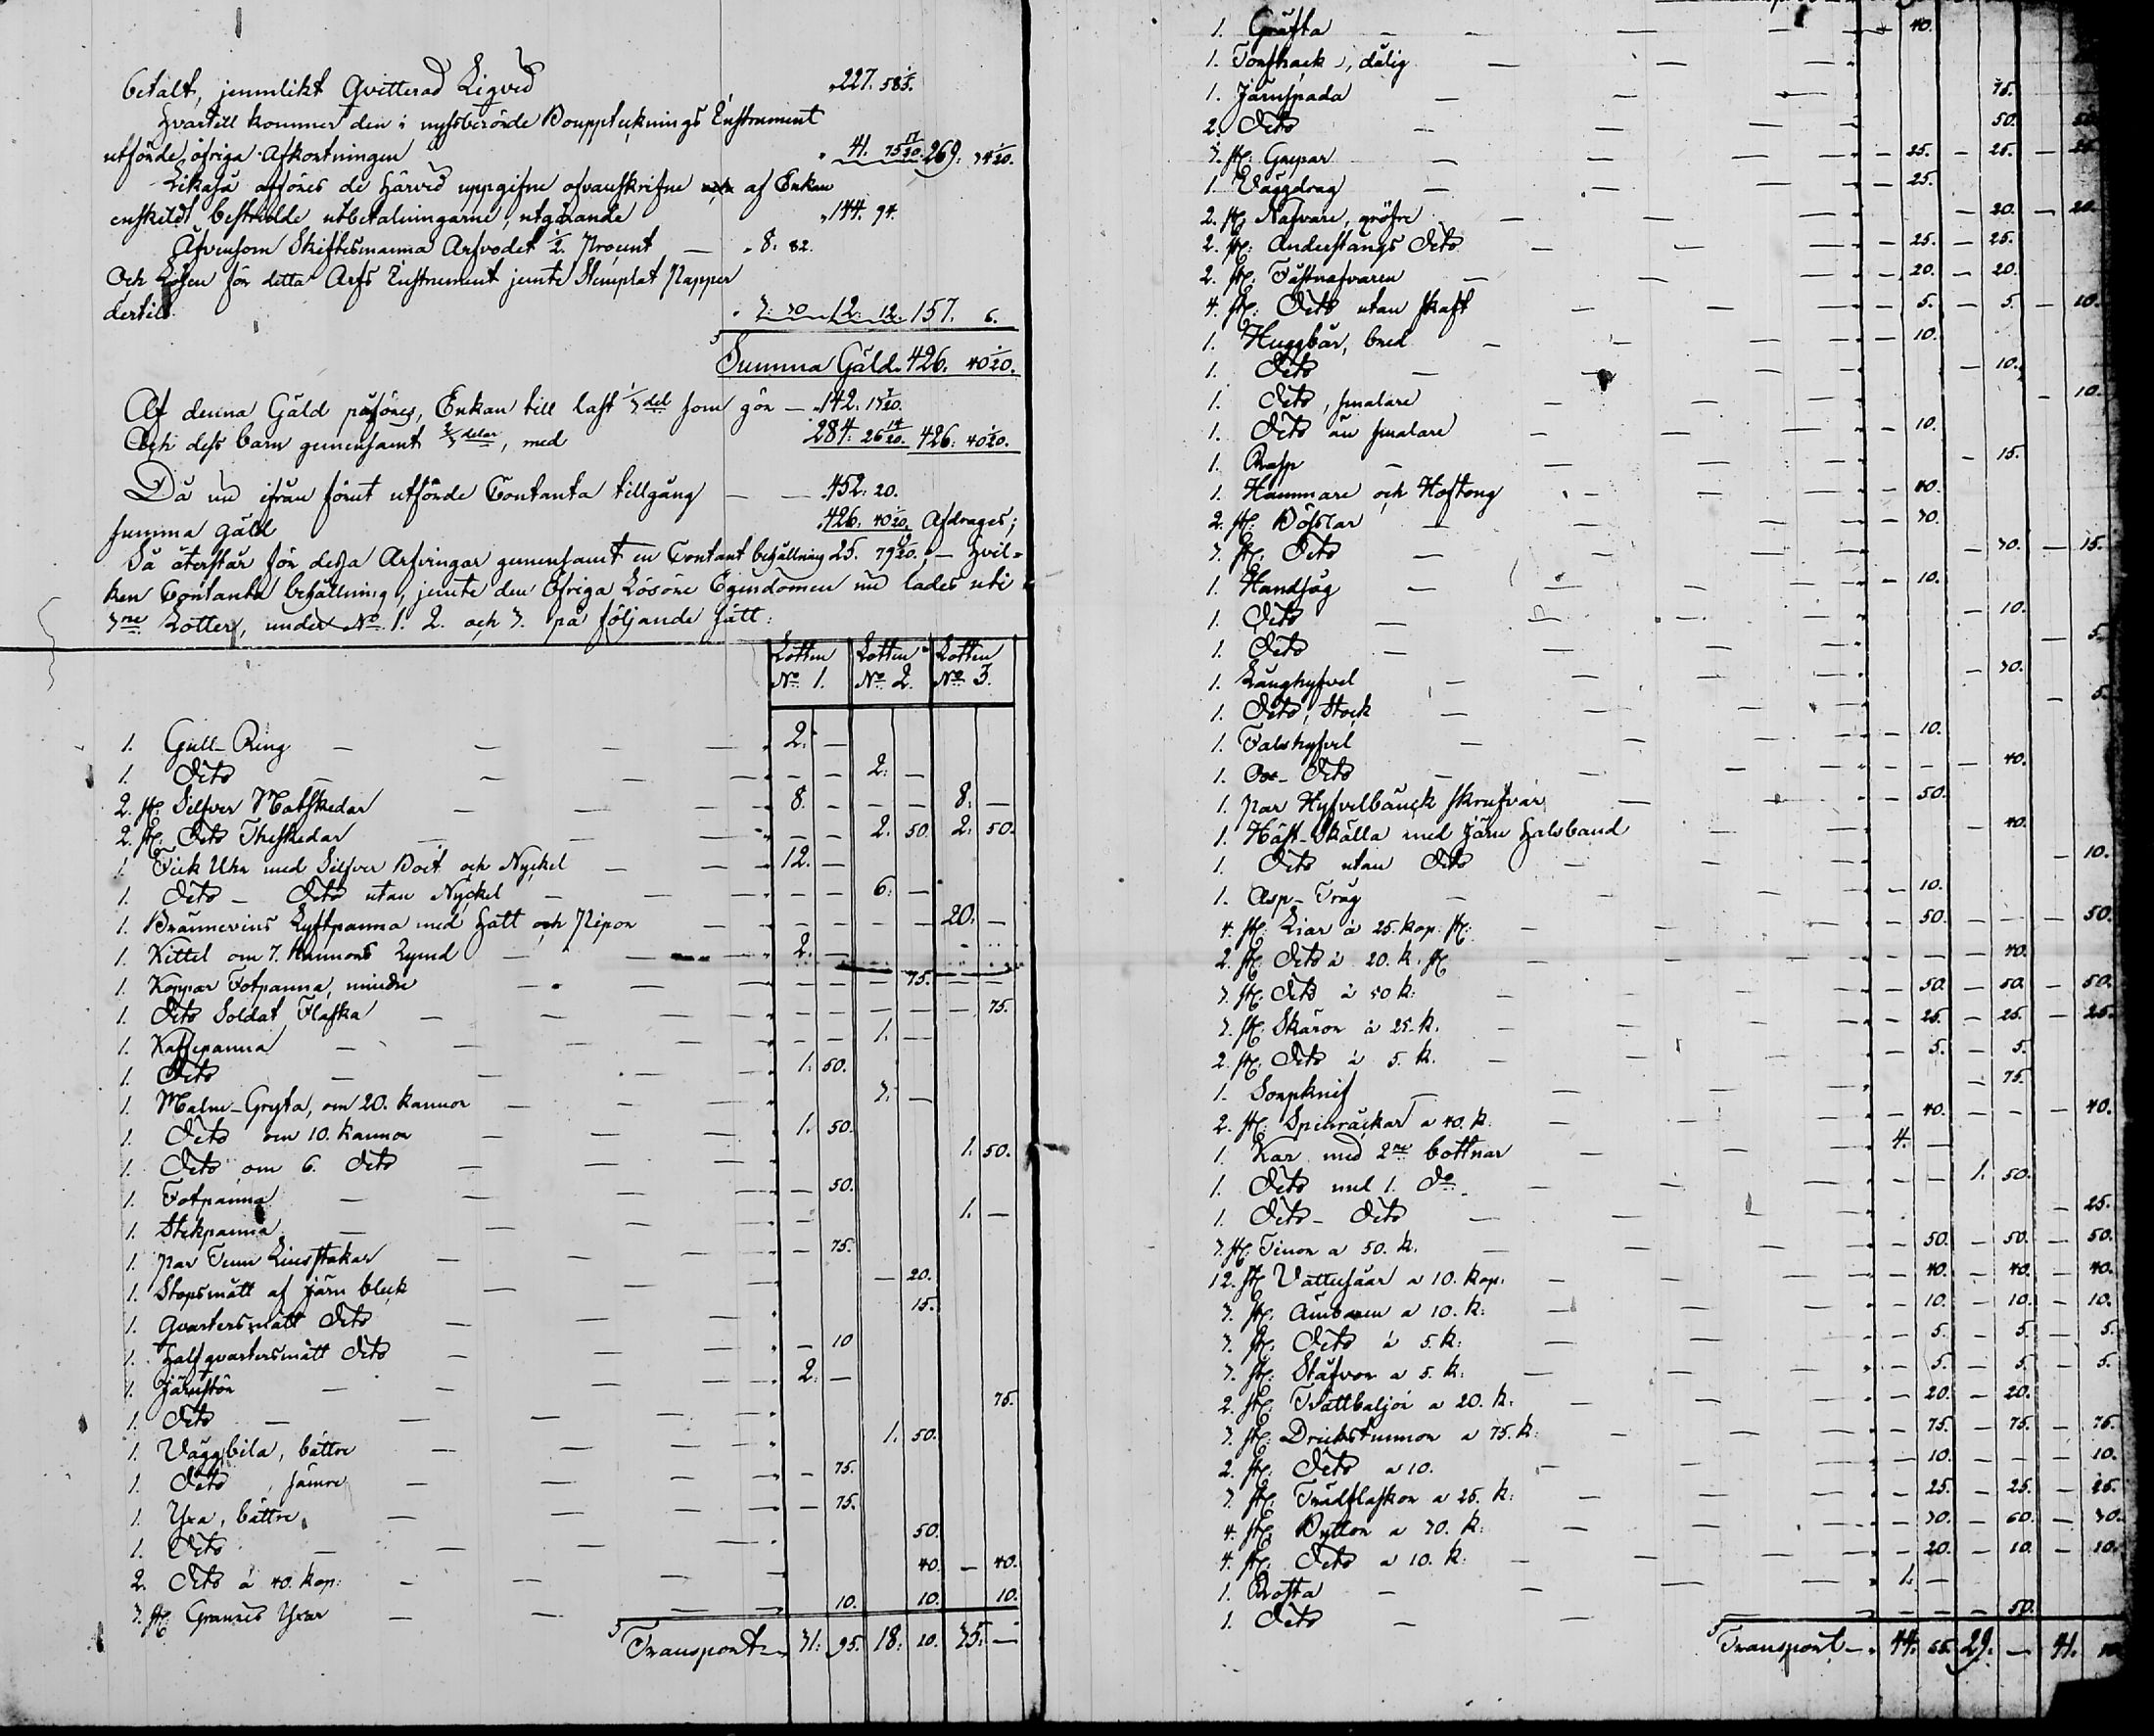 betalt, jemnlikt Qvitterad Liqvid 227. 58 1/5.
Hvartill kommer den i nystberörde Bouppteknings Instrument
utförde öfriga Afkortningen 41. 75 17/20. 269: 34 1/20.
Likaså afföres de härvid uppgifne ofvanskrifne af Enkan
enskildt bestridde utbetalningarne, utgörande 144. 94.
Äfvensom Skiftesmanna Arfvodet 1/2 Procent — 8: 82.
Och Lösen för detta Arfs Instrument jemte Stemplat Papper
dertill 3: 30. 12: 12. 157. 6.
Summa Gäld. 426. 40 1/20.
Af denna Gäld påföres, Enkan till last 1/3 del som gör — 142: 13 7/20.
Och dess barn gemensamt 2/3 delar, med 284: 26 14/20. 426: 40 1/20.
Då nu ifrån förut utförde Contanta tillgång — 452: 20.
summa gäld 426. 40 1/20. Afdrages;
Så återstår för dessa Arfvingar gemensamt en Contant behållning 25. 79 19/20. — hvil=
ken Contanta behållning, jemte den öfriga Lösöre Egendomen nu lades uti
3ne Lotter, under No. 1. 2. och 3. på följande sätt:
Lotten No. 1. Lotten No. 2. Lotten No. 3.
1. Gull-Ring — 2. —
1. Dito — 2: —
2. st. Silfver Matskedar — 8. — — — 8: —
2. st. Dito Theskedar — — — 2. 50. 2: 50.
1. Fick Uhr med Silfver Boët och Nyckel — 12. —
1. Dito — Dito utan Nyckel — 6: —
1. Brännevins Lyftpanna med Hatt och Pipor — 20. —
1. Kittel om 7. Kannors Rymd — 2. —
1. Koppar Fotpanna, mindre — 75. — —
1. Dito Soldat Flaska — 75.
1. Kaffepanna — 1. —
1. Dito — 1. 50.
1. Malm-Gryta, om 20. kannor — 3. —
1. Dito om 10. kannor — 1. 50.
1. Dito om 6. Dito — 1. 50.
1. Fotpanna — 50.
1. Stekpanna — 1. —
1. par Tenn Ljusstakar — 75.
1. Stopsmått af Järn bleck — 20.
1. Qvartersmått Dito — 15.
1. Half qvartersmått Dito — 10
1. Järnstör — 2: —
1. Dito — 75.
1. Väggbila, bättre — 1. 50.
1. Dito, sämre — 75.
1. Yxa, bättre — 75.
1. Dito — 50.
2. Dito à 40. kop: — 40. — 40.
3. st. Yxar — 10. 10. 10.
Transport — 31: 95. 18: 20. 35. —
1. Gräfta — 40.
1. Torfhack, dålig —
1. Järnspada — 75.
2. Dito — 50. 50.
3. st. Gaspar — 25. — 25. — 25.
1. Väggdrag — 25.
2. st. Nafvare, gröfre — 20. — 20.
2. st. Anderstångs Dito — 25. — 25.
2. st. Fästnafvaren — 20. — 20.
4. st. Dito utan skaft — 5. — 5. — 10.
1. Huggbär, bred — 10.
1. Dito — 10.
1. Dito, smalare — 10.
1. Dito än smalare — 10.
1. Rasp — 15.
1. Hammare och Hoftong — 40.
2. st. Bösslar — 30.
3. st. Dito — 30. — 15.
1. Handsåg — 10.
1. Dito — 10.
1. Dito — 5.
1. Långhyfvel — 30.
1. Dito, Stock — 5.
1. Falshyfvel — 10.
1. Ox-Dito — 40.
1. par Hyfvelbänck skrufvar — 50.
1. Häst-Skälla med Järn Halsband — 40.
1. Dito utan Dito — 10.
1. Asp-Tråg — 10.
4. st. Liar à 25. kop. st: — 50. — — — 50.
2. st. Dito à 20. k. st. — 40.
3. st. Dito à 50 k: — 50. — 50. — 50.
3. st. Skäror à 25. k. — 25. — 25. — 25.
2. st. Dito à 5. k. — 5. — 5.
1. Sorpknif — 75.
2. st. Spinråckar a 40. k. — 40. — — — 40.
1. Kar med 2ne bottnar — 4. —
1. Dito med 1. Do — 1. 50.
1. Dito — Dito — 25.
3. st. Tinor a 50. k. — 50. — 50. — 50.
12. st. Vattusåar a 10. kop. — 40. — 40. — 40.
3. st. Ämbaren a 10. k: — 10. — 10. — 10.
3. st. Dito à 5. k: — 5. — 5. — 5.
3. st. Stäfvor a 5. k: — 5. — 5. — 5.
2. st. Tvättbaljor a 20. k. — 20. — 20.
3. st. Dricks tunnor a 75. k: — 75. — 75. — 75.
2. st. Dito a 10. — 10. — — — 10.
3. st. Trädflaskor a 25. k: — 25. — 25. — 25.
4. st. Byttor a 30. k: — 30. — 60. — 30.
4. st. Dito a 10. k: — 20. — 10. — 10.
1. Rosta — 1. —
1. Dito — 50.
Transport — 44. 65. 29. — 41.